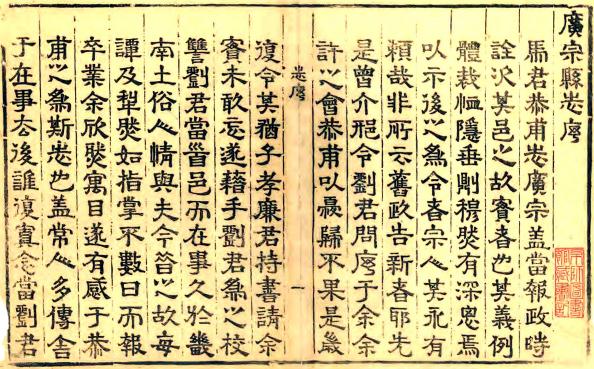 廣宗縣志序
馬君恭甫志廣宗蓋當報政時
詮次其邑之故實者也其義例
體裁恤隱垂剛穆然有深思焉
以示後之為令者宗人其永有
賴哉非所云舊政告新者耶先
是曾介邢令劉君問序于余余
許之會恭甫以最歸不果是歲
志序
一
復令其猶子孝廉君持書請余
實未敢忘遂藉手劉君為之校
讐劉君當署邑而在事久於畿
南土俗人情與夫令昝之故每
譚及犁然如指掌不數日而報
卒業余欣然寓目遂有感于恭
甫之為斯志也蓋常人多傳舍
于在事去後誰復寘念當劉君